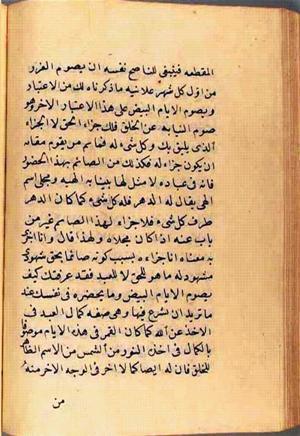 المقطعه فينبغى للناصح نفسه ان يصوم الغرر
من اول كل شهر علانيه ما ذكرناه لك من الاعتبار
ويصوم الايام البيض على هذا الاعتبار الاخر وهو
صوم النيابة عن الخلق فلك جزاء الحق لا الجزاء
الذى يليق بك وكل شىء له فما ثم من يقوم مقامه
ان يكون جزاء له فكذلك من الصائم بهذا الحضور
فانه فى عباده لا مثل لها بنيابه الهيه ومجلى اسم
الهى يقال له الدهر فله كل شىء كما كان الدهر
ظرف كل شىء فلا جزاء لهذا الصائم غير من
ناب عنه اذ كان مجلاه ولهذا قال وانا اجزى
به معناه انا جزاءه بسبب كونه صائما بحق شهودى
مشهود له ما هو للحق لا للعبد فقد عرفتك كيف
يصوم الايام البيض وما يحضره فى نفسك عند
ما تريد ان تشرع فيها وهى صفه كمال العبد فى
الاخذ عن الله كما كان القمر فى هذه الايام موصوفا
بالكمال فى اخذه النور من الشمس من الاسم الظاهر
للخلق فان له ايضا كمالا اخر فى الوجه الاخر منه
من